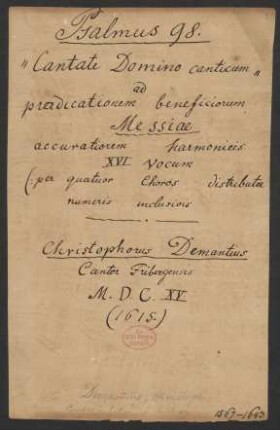 Psalmus 98.
„Cantate Domino canticum„
ad
praedicationem beneficiorum
Messiae
accuratiorem harmonicis
XVI Vocum
(:per quatuor Choros distributa
numeris inclusiois
Christophorus Demantius
Cantor Fribergensis
M. D. C. XV
(1615.)
1567-1643